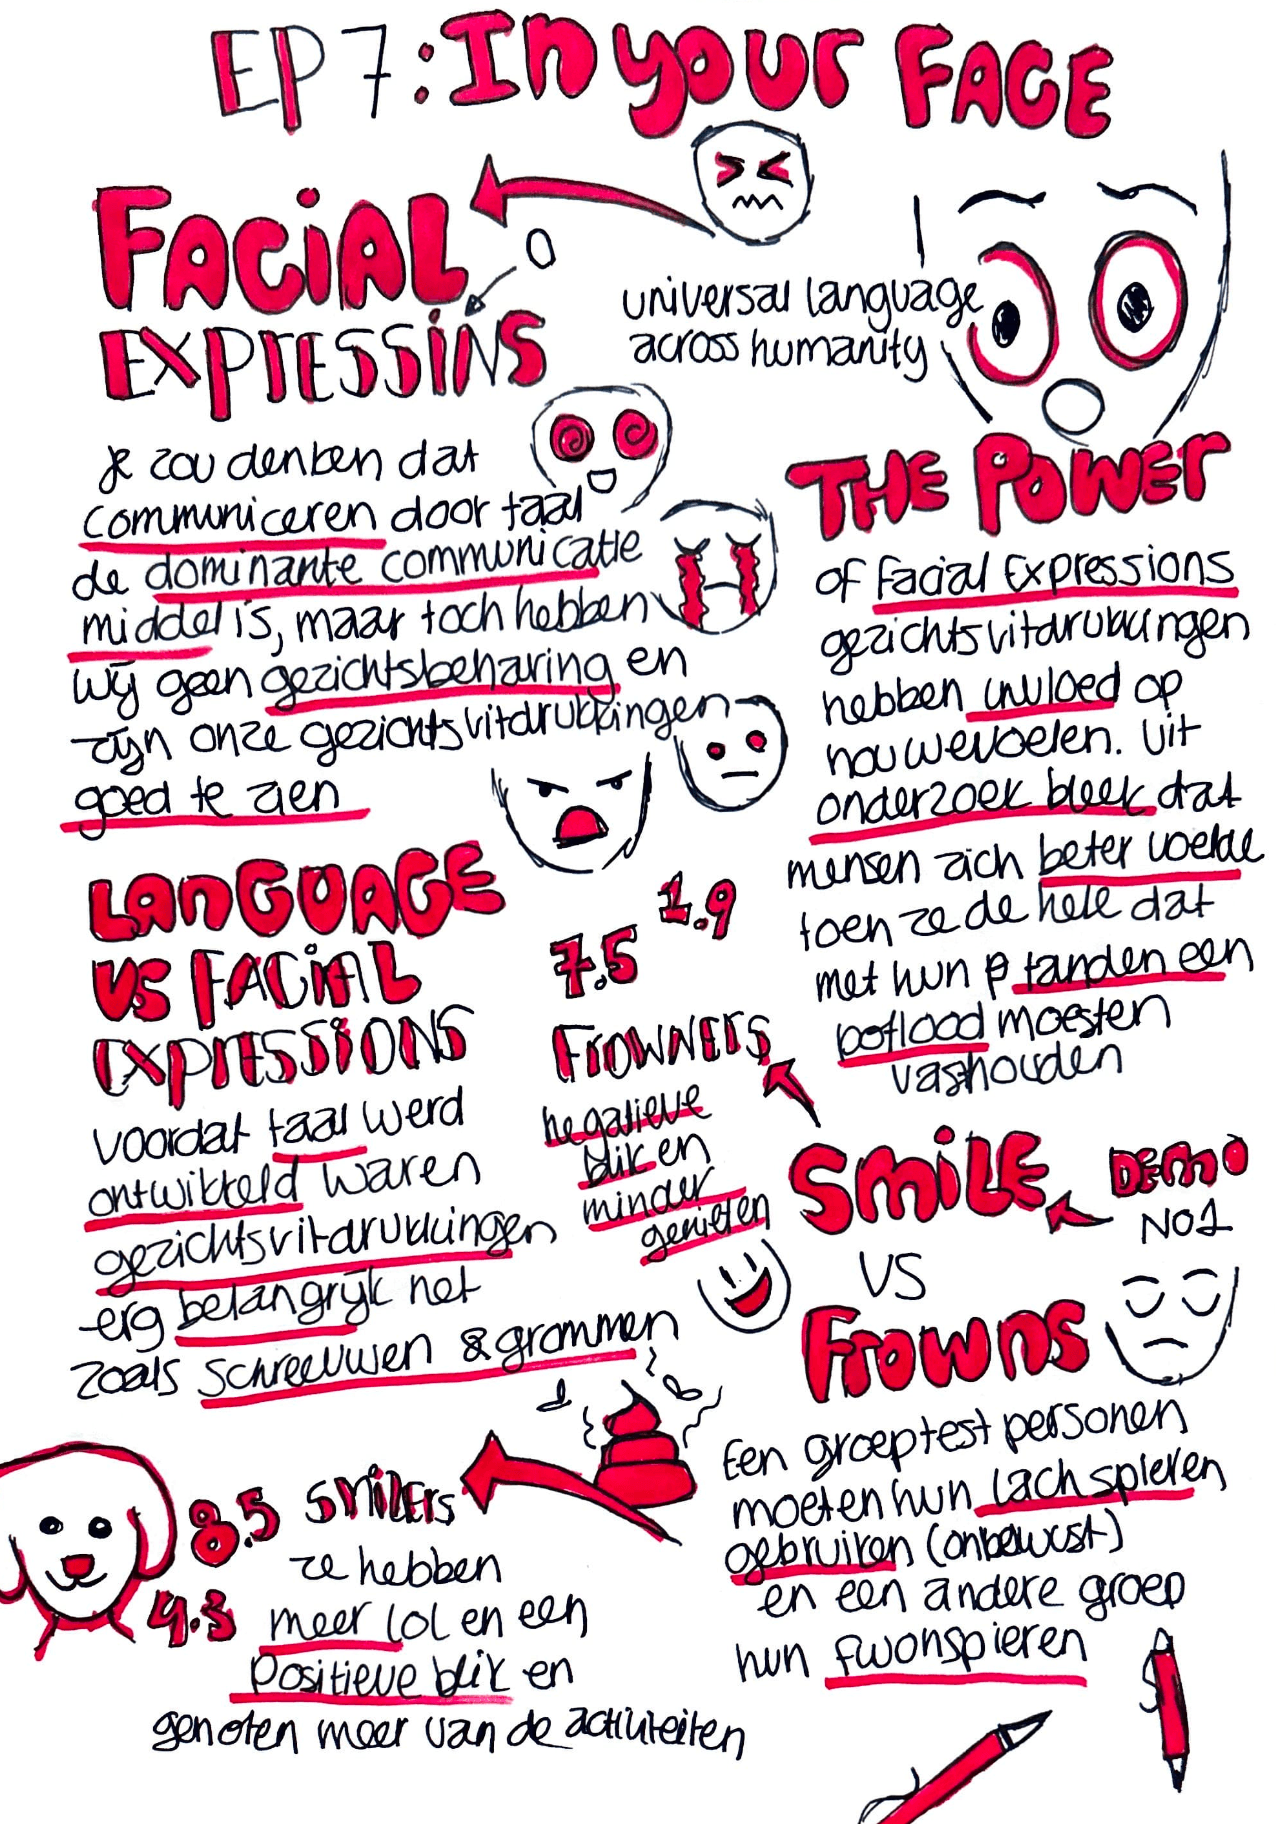 EP 7: In your FACE
FACiAL
O
EXPrESSiNS
universal language
across humanity
je zou denken dat
communiceren door taal
de dominante communicatie
middel is, maar toch hebben
wij geen gezichtsbeharing en
zijn onze gezichtsuitdrukkingen
goed te zien
THE POWEr
of Facial Expressions
gezichtsuitdrukkingen
hebben invloed op
hou wevoelen. Uit
onderzoek bleek dat
mensen zich beter voelde
toen ze de hele dat
met hun p tanden een
potlood moesten
vashouden
LAnGUAGE
VS FACiAL
EXPrESSiONS
voordat taal werd
ontwikkeld waren
gezichtsuitdrukkingen
erg belangrijk net
zoals schreeuwen & grommen
7.5 1.9
FrOWNErS
negatieve
blik en
minder
genieten
SmiLE
DEmO
NO1
VS
Frowns
Een groep test personen
moeten hun lach spieren
gebruiken (onbewust)
en een andere groep
hun fwonspieren
8.5 SmilErs
4.3
ze hebben
meer lol en een
positieve blik en
genoten meer van de activiteiten